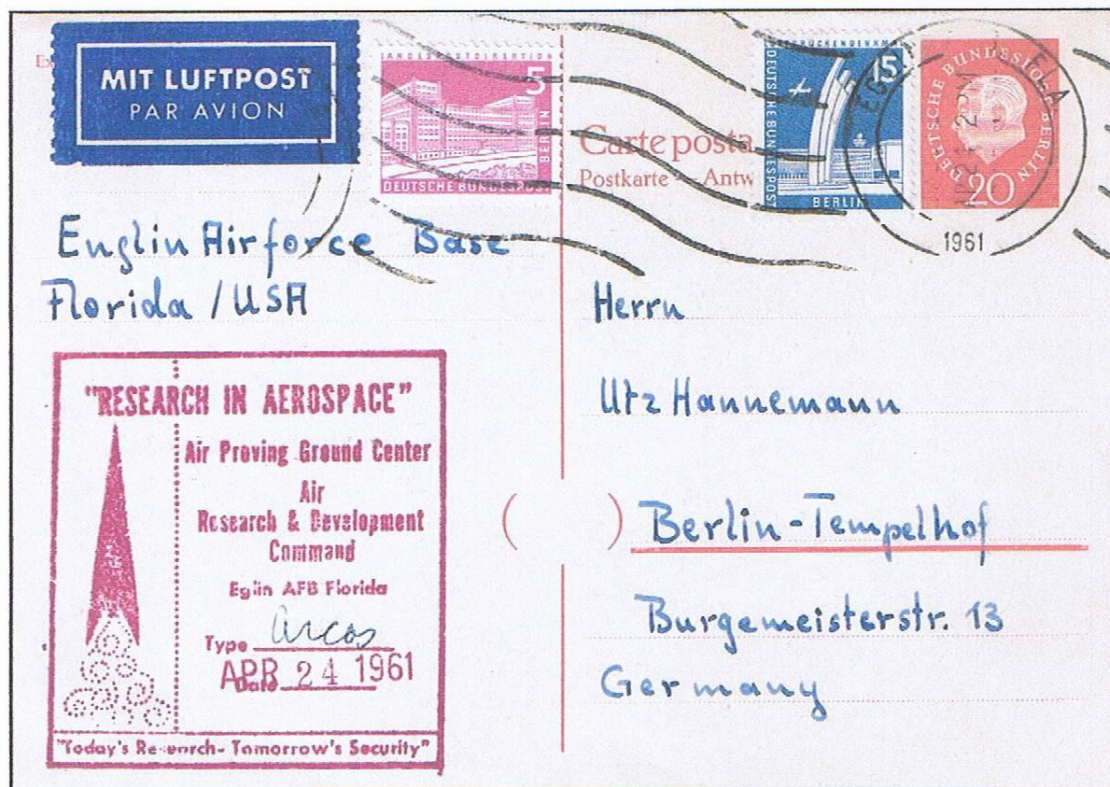 MIT LUFTPOST
PAR AVION
LANDESPOSTDIREKTION
5
BERLIN
DEUTSCHE BUNDESPOST
Carte posta
Postkarte — Antw
15
DEUTSCHE BUNDESPOST
BERLIN
DEUTSCHE BUNDESPOST BERLIN
20
1961
Englin Airforce Base
Florida / USA
"RESEARCH IN AEROSPACE"
Air Proving Ground Center
Air
Research & Development
Command
Eglin AFB Florida
Type Arcas
APR 24 1961
Date
"Today's Research - Tomorrow's Security"
Herrn
Utz Hannemann
( ) Berlin-Tempelhof
Burgemeisterstr. 13
Germany